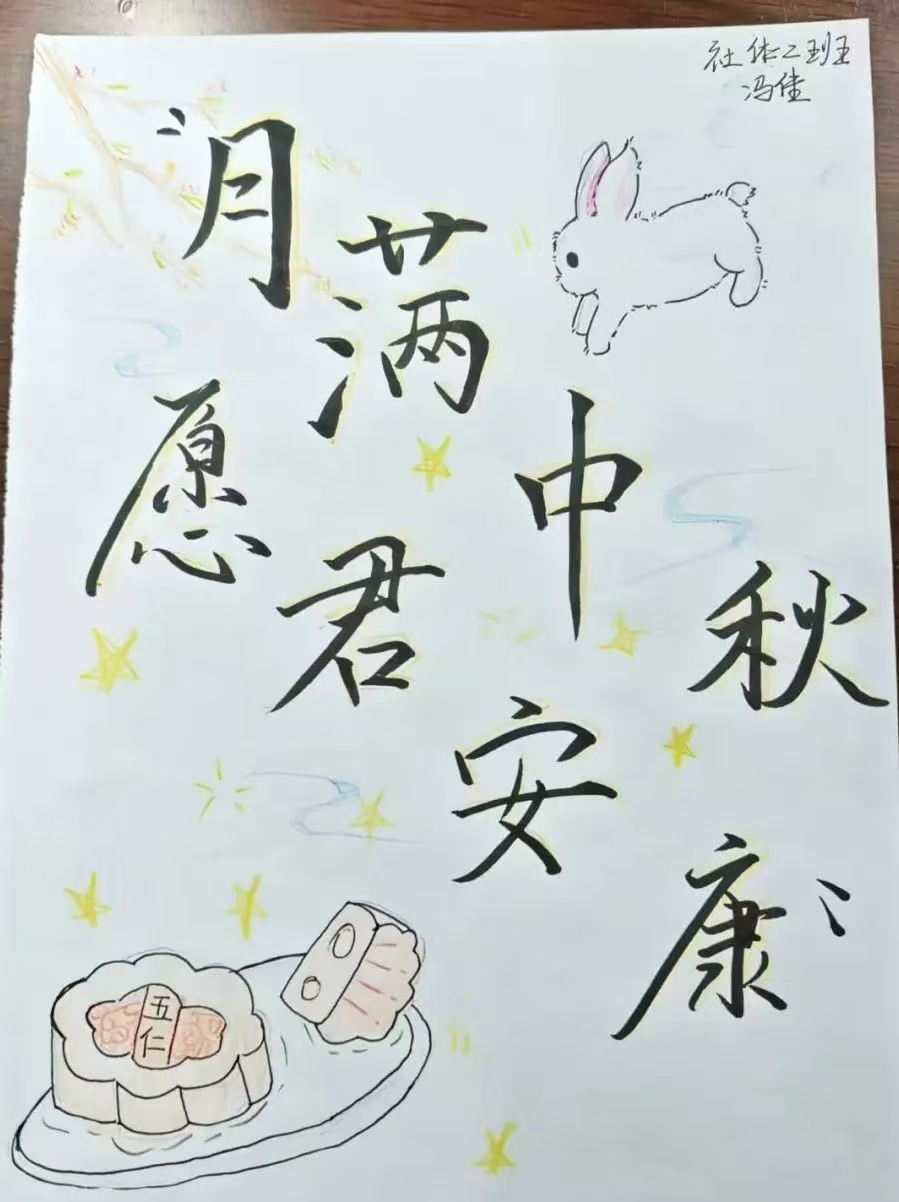 社体二班
冯佳
“月满中秋
愿君安康”
五仁